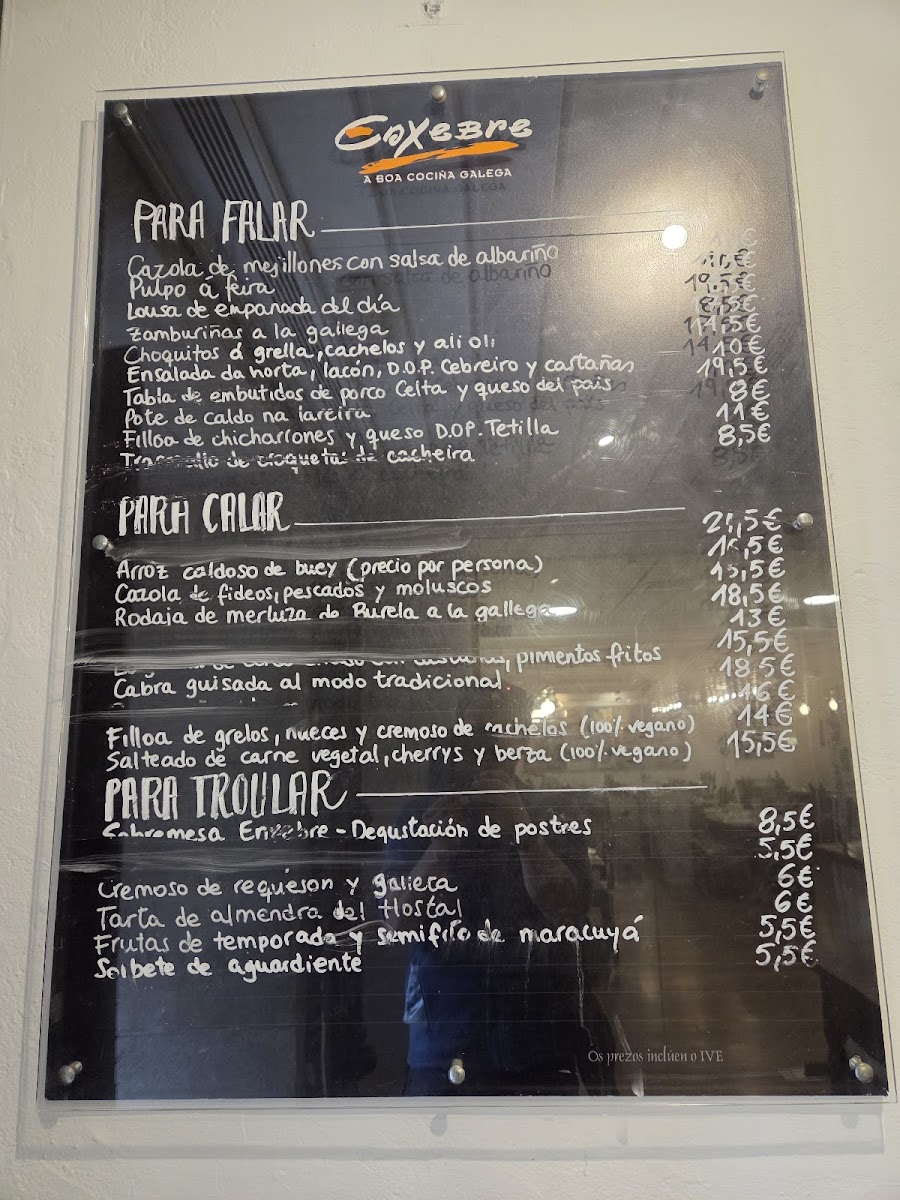 Enxebre
A BOA COCIÑA GALEGA
PARA FALAR
Cazola de mejillones con salsa de albariño
Pulpo á feira 19,5€
Lousa de empanada del día 8,5€
Zamburiñas a la gallega 11,5€
Choquitos á grella, cachelos y ali oli 10€
Ensalada da horta, lacón, D.O.P. Cebreiro y castañas 19,5€
Tabla de embutidos de porco Celta y queso del país 8€
Pote de caldo na lareira 11€
Filloa de chicharrones y queso D.O.P. Tetilla 8,5€
de croquetas de cacheira
PARA CALAR
5€
Arroz caldoso de buey (precio por persona) 5€
Cazola de fideos, pescados y moluscos 15,5€
Rodaja de merluza de Burela a la gallega 18,5€
13€
pimientos fritos 15,5€
Cabra guisada al modo tradicional 18,5€
16€
Filloa de grelos, nueces y cremoso de cachelos (100% vegano) 14€
Salteado de carne vegetal, cherrys y berza (100% vegano) 15,5€
PARA TROULAR
Sobremesa Enxebre - Degustación de postres 8,5€
5,5€
Cremoso de requeson y galleta 6€
Tarta de almendra del Hostal 6€
Frutas de temporada y semifrío de maracuyá 5,5€
Sorbete de aguardiente 5,5€
Os prezos inclúen o IVE